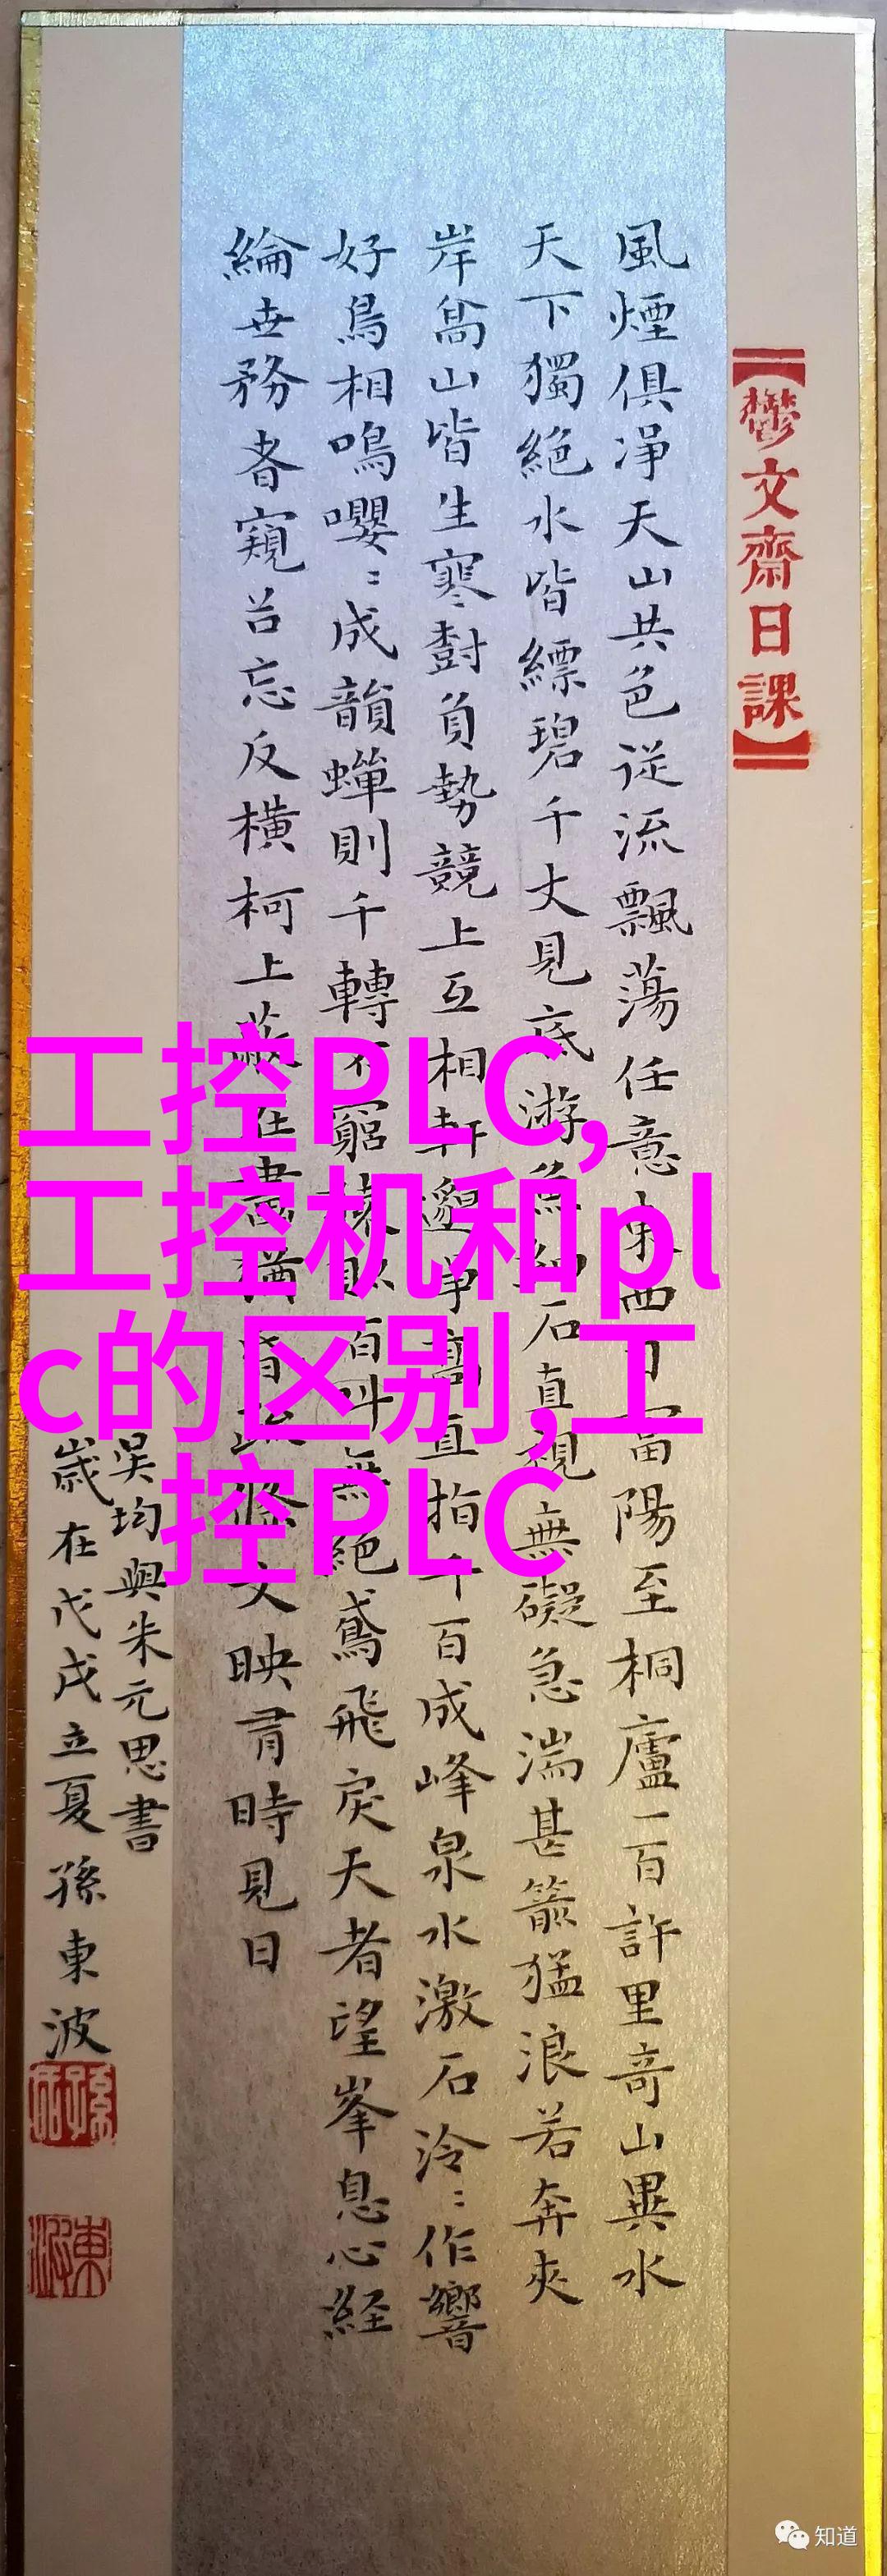 【鬱文齋日課】
風煙俱淨天山共色從流飄蕩任意東西自富陽至桐廬一百許里奇山異水
天下獨絕水皆縹碧千丈見底游魚細石直視無礙急湍甚箭猛浪若奔夾
岸高山皆生寒樹負勢競上互相軒邈爭高直指千百成峰泉水激石泠〻作響
好鳥相鳴嚶〻成韻蟬則千轉不窮猿則百叫無絕鳶飛戾天者望峯息心經
綸世務者窺谷忘反橫柯上蔽在晝猶昏疏條交映有時見日
吳均與朱元思書
歲在戊戌立夏孫東波
工控PLC,
工控机和pl
c的区别,工
控PLC
知道